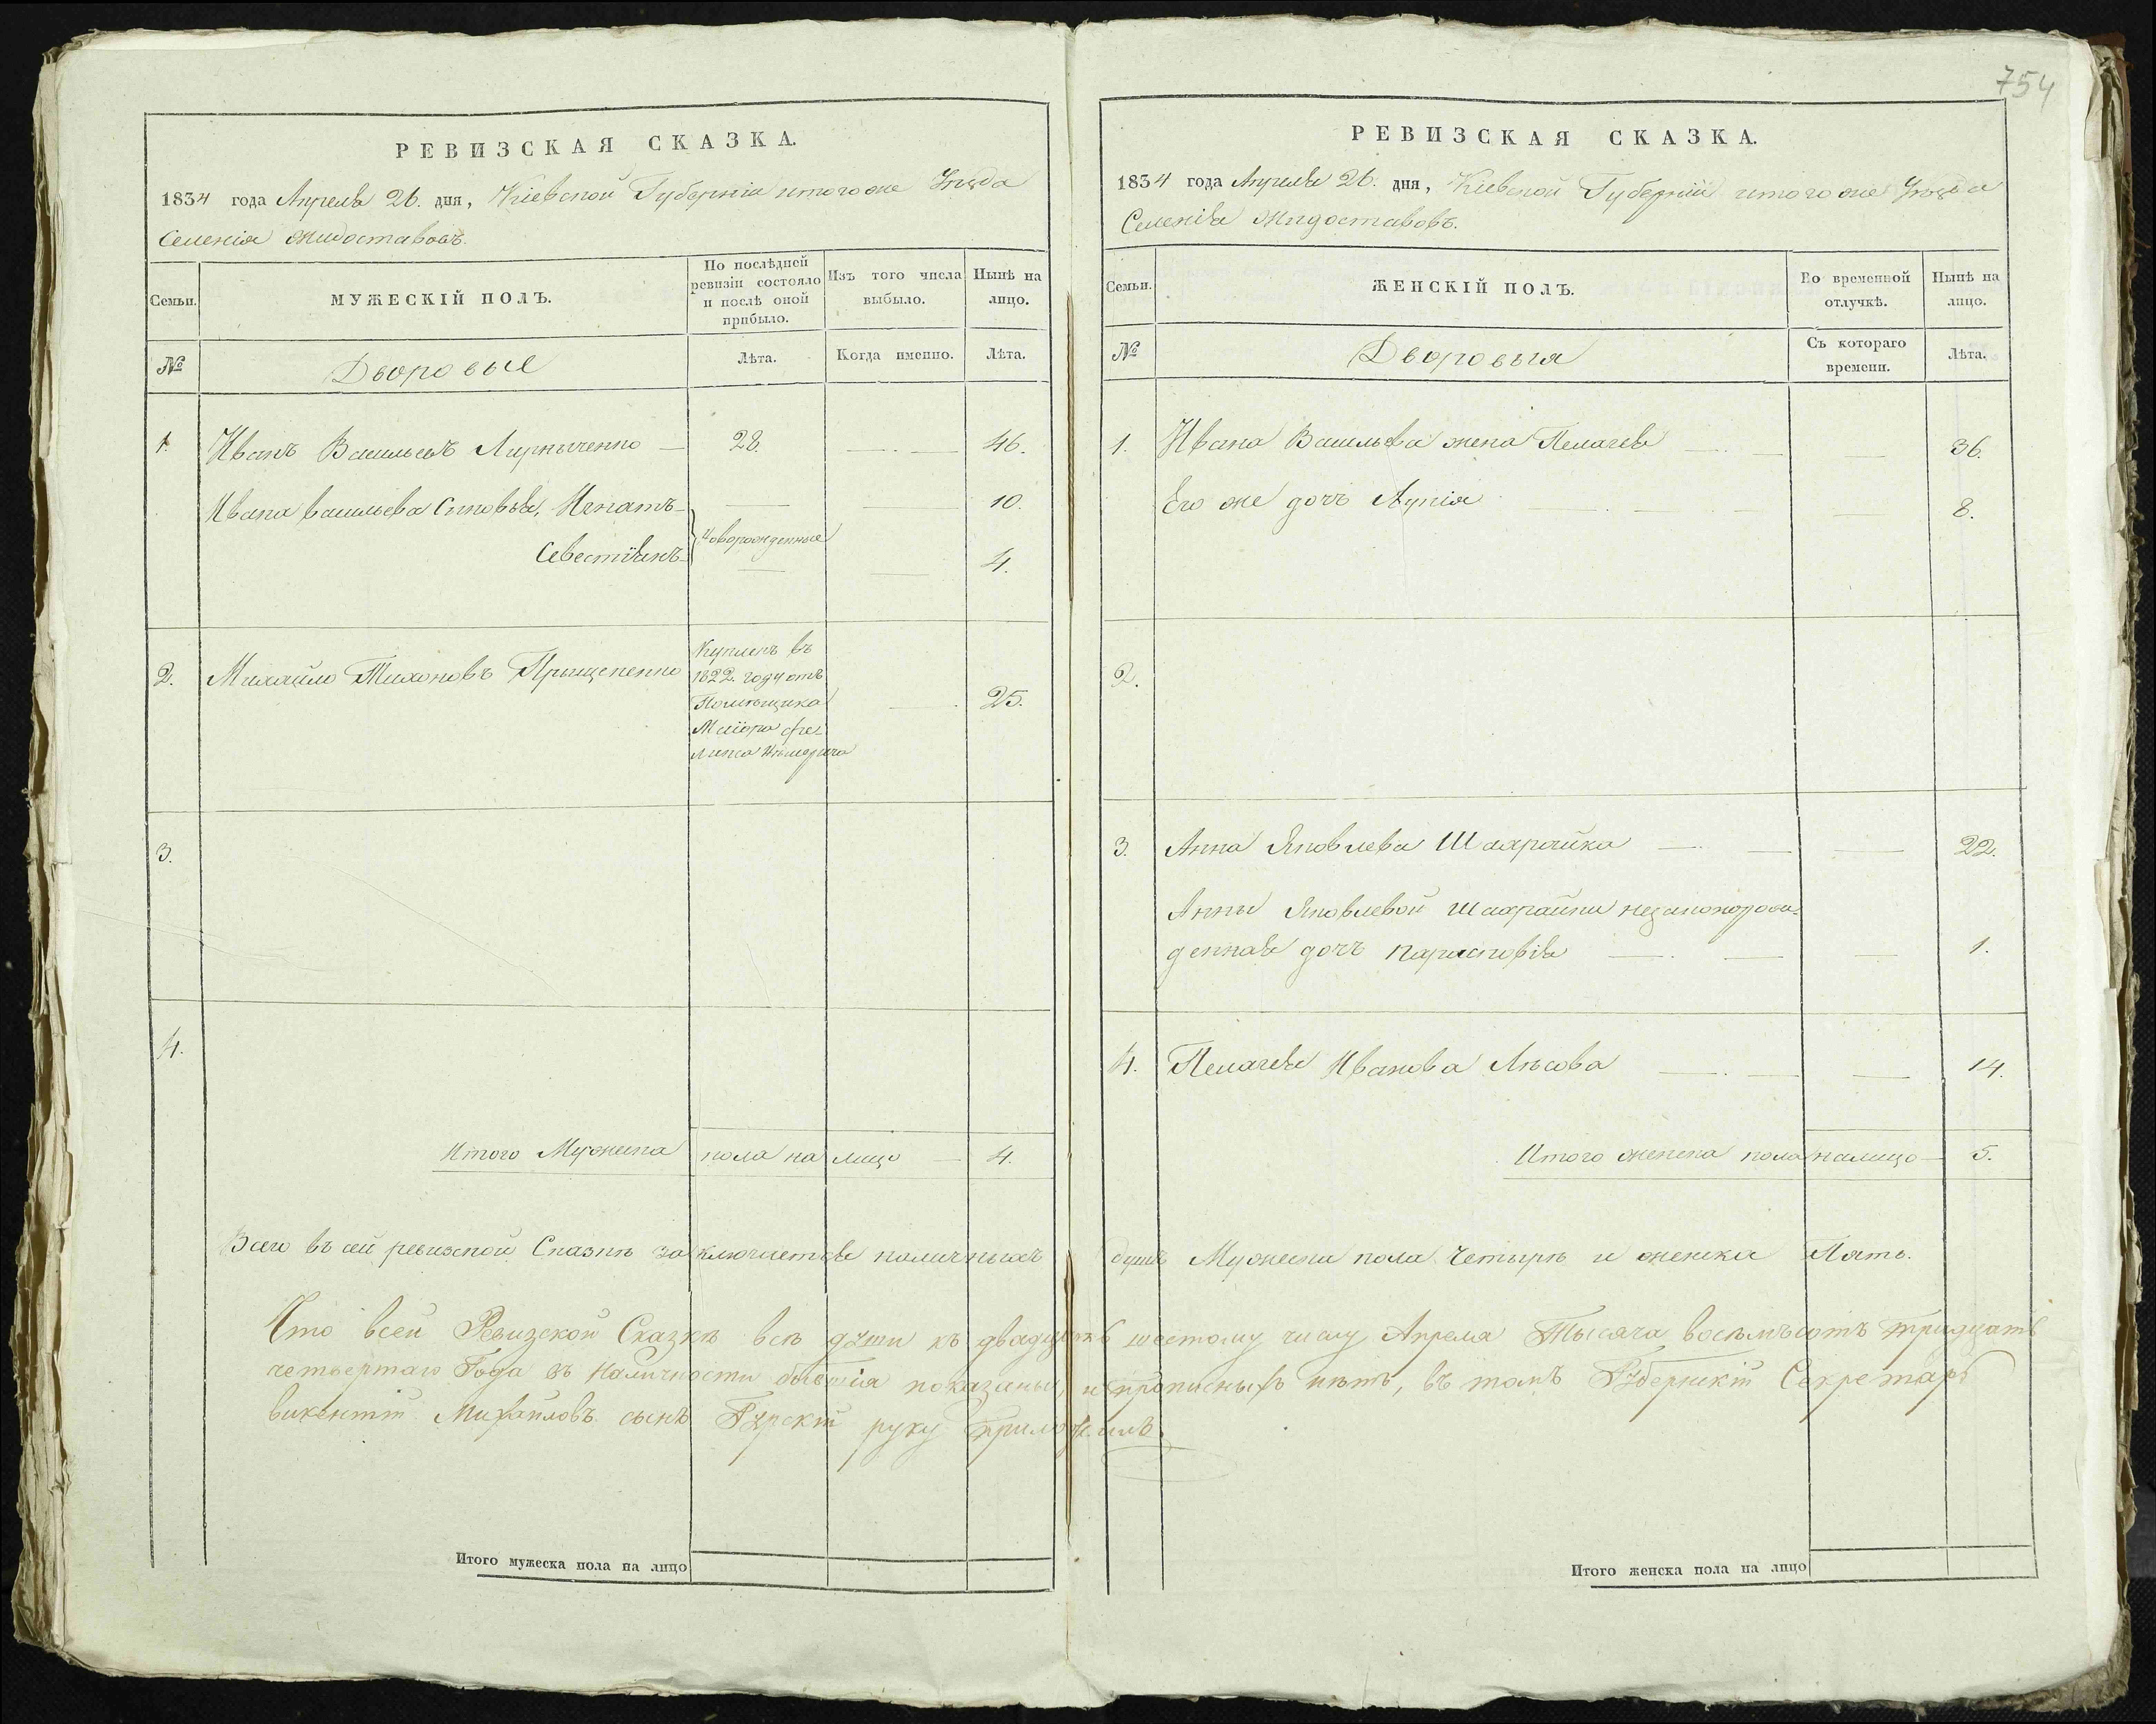 754
РЕВИЗСКАЯ СКАЗКА.
1834 года Апреля 26. дня, Кіевской Губерніи итогоже Уѣзда
Селенія Жидоставовъ.
Семьи.
МУЖЕСКІЙ ПОЛЪ.
По послѣдней ревизіи состояло и послѣ оной прибыло.
Изъ того числа выбыло.
Нынѣ на лицо.
№
Дворовые
Лѣта.
Когда именно.
Лѣта.
1. Иванъ Васильевъ Лирныченко — 28. — . — 46.
Ивана васильева Сыновья, Игнатъ — — — 10.
Севестіянъ — новорожденные — — 4.
2. Михайло Тихоновъ Прыщепенко
Купленъ въ
1822. году отъ
Помѣщика
Маіора
— . 25.
3.
4.
Итого Мужеска пола на лицо — 4.
РЕВИЗСКАЯ СКАЗКА.
1834 года Апреля 26. дня, Кіевской Губерніи итого же Уѣзда
Селенія Жидоставовъ.
Семьи.
ЖЕНСКІЙ ПОЛЪ.
Во временной отлучкѣ.
Нынѣ на лицо.
№
Дворовыя
Съ котораго времени.
Лѣта.
1. Ивана Васильева жена Пелагея — . — — 36.
Его же дочь — . — . — — 8.
2.
3. Анна Яковлева Шахрайка — . — — 22.
Анны Яковлевой Шахрайки незаконорож-
денная дочь Парасковія — . — — 1.
4. Пелагея Иванова Лѣсова — . — — 14.
Итого женска пола налицо — 5.
Всего въ сей ревизской Сказкѣ заключается наличныхъ душъ Мужеска пола Четырѣ и женска Пять.
Что всей Ревизской Сказкѣ всѣ души къ двадцать шестому числу Апреля Тысяча восемьсотъ тридцать
четвертаго Года въ Наличности бытія показаны, и прописныхъ нѣтъ, въ томъ Губернскій Секретарь
викентій Михайловъ сынъ руку приложилъ.
Итого мужеска пола на лицо
Итого женска пола на лицо